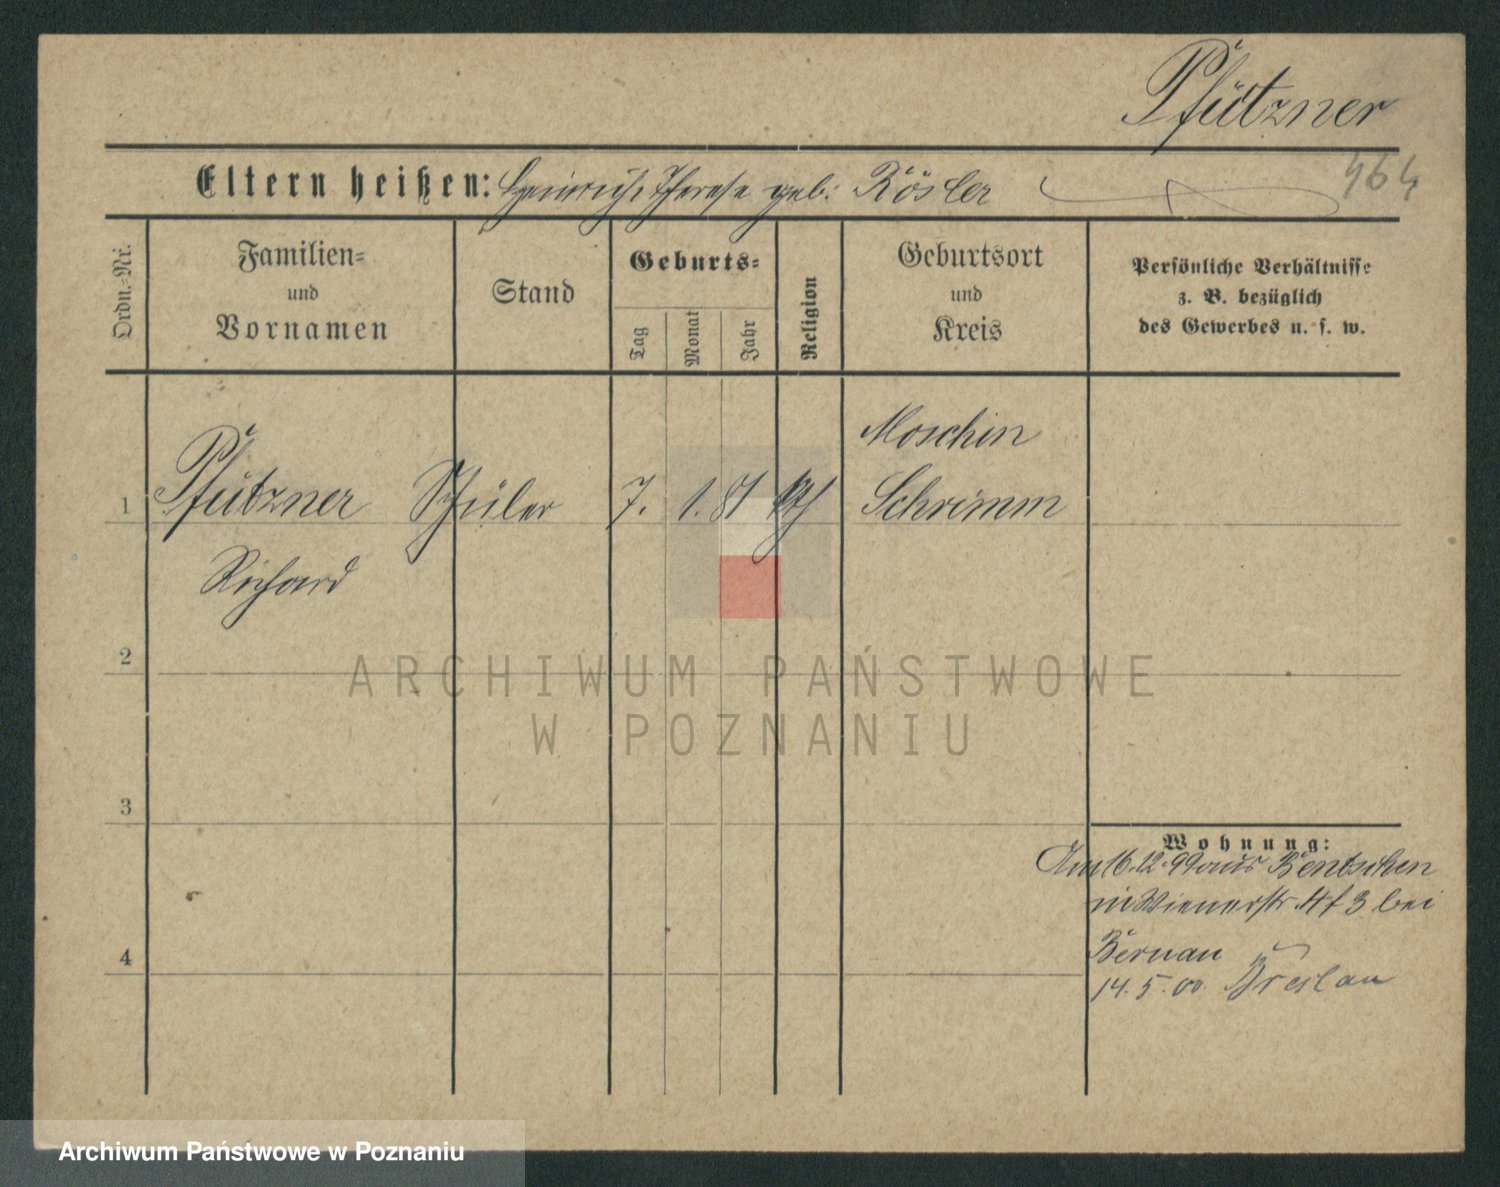 Pfützner
464
Eltern heißen: Heinrich, Therese geb. Rösler
Ordn.-Nr.
Familien-
und
Vornamen
Stand
Geburts-
Tag
Monat
Jahr
Religion
Geburtsort
und
Kreis
Persönliche Verhältnisse
z. B. bezüglich
des Gewerbes u. s. w.
1
Pfützner
Richard
Schüler
7. 1. 81
Moschin
Schrimm
2
3
4
Wohnung:
Am 16.12.99 aus Bentschen
in Wienerstr. 3 bei
Bernau
14.5.00 Breslau
ARCHIWUM PAŃSTWOWE
W POZNANIU
Archiwum Państwowe w Poznaniu